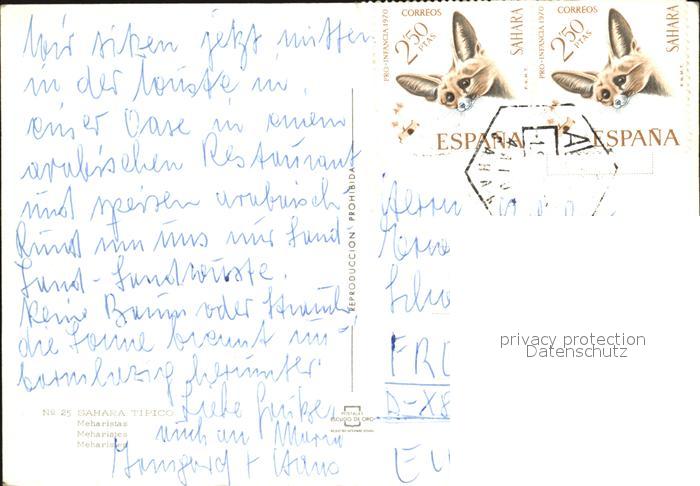 Wir sitzen jetzt mitten
in der Wüste in
einer Oase in einem
arabischen Restaurant
und speisen arabisch
Rund um uns nur Sand
Sand-Sandwüste.
keine Baum oder Strauch
die Sonne brennt un-
barmherzig herunter
Liebe Grüße
auch an Maria
Irmgard + Hans
Nº 25 SAHARA TIPICO
Meharistas
Meharistes
REPRODUCCION PROHIBIDA
POSTALES
ESCUDO DE ORO
PRO-INFANCIA 1970
CORREOS
2'50
PTAS
SAHARA
F.N.M.T.
ESPAÑA
PRO-INFANCIA 1970
CORREOS
2'50
PTAS
SAHARA
F.N.M.T.
ESPAÑA
Herrn
FRE
D-X8
EU
privacy protection
Datenschutz